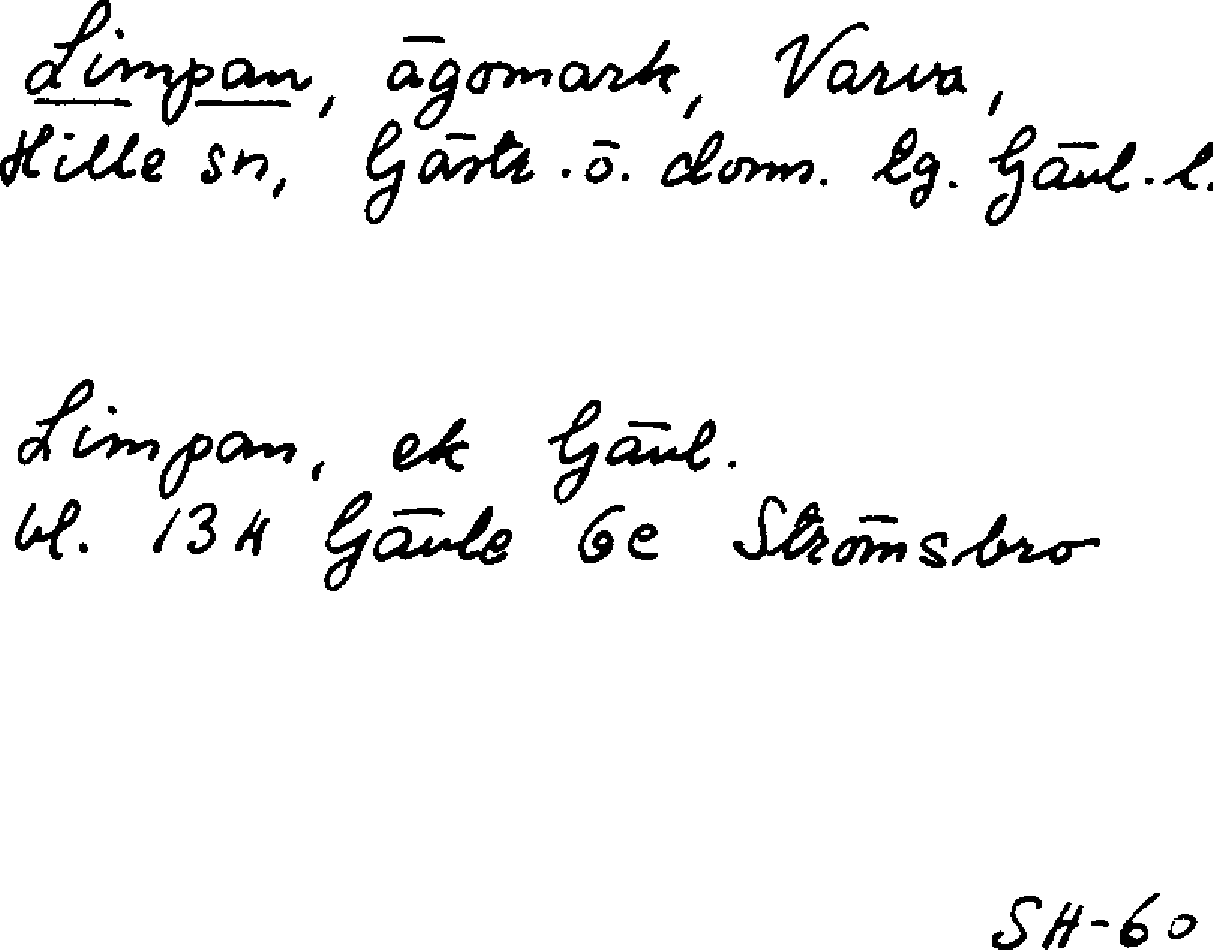 Limpan, ägomark, Varva,
Hille sn, Gästr.ö. doms. lg. Gävl.l.
Limpan, ek Gävl.
bl. 13H Gävle 6e Strömsbro
SH-60